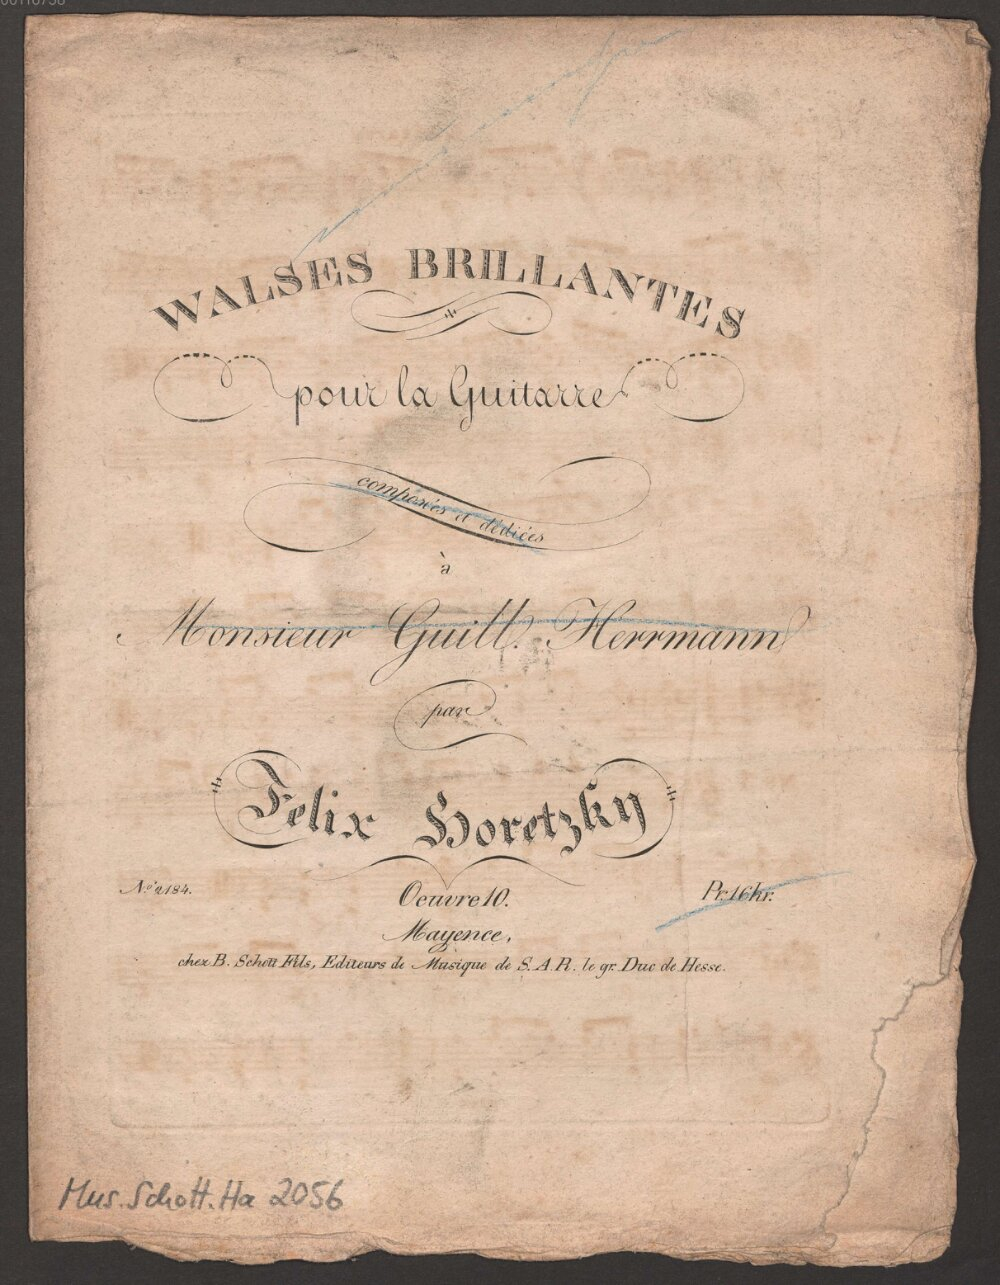 00110758
WALSES BRILLANTES
pour la Guitarre
composées et dédiées
à
Monsieur Guill. Herrmann
par
Felix Horetzky
No. 2184.
Oeuvre 10.
Pr. 16 kr.
Mayence,
chez B. Schott Fils, Editeurs de Musique de S. A. R. le gr. Duc de Hesse.
Mus. Schott. Ha 2056